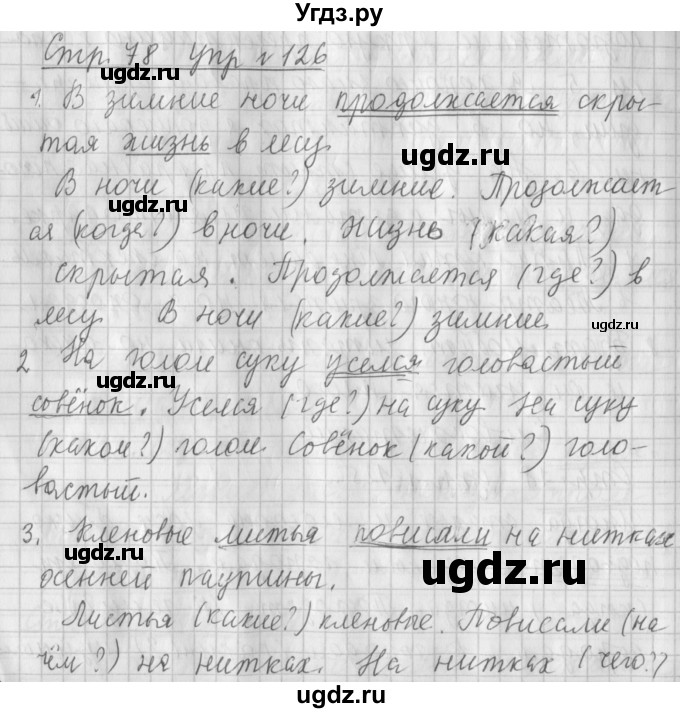 Угдз.ру
Стр. 78 упр № 126
ugdz.ru
1. В зимние ночи продолжается скры-
тая жизнь в лесу.
ugdz.ru
ugdz.ru
В ночи (какие?) зимние. Продолжает-
ся (когда?) в ночи. Жизнь (какая?)
скрытая. Продолжается (где?) в
лесу. В ночи (какие?) зимние.
ugdz.ru
2 На голом суку уселся головастый
ugdz.ru
совёнок. Уселся (где?) на суку. На суку
(каком?) голом. Совёнок (какой?) голо-
ugdz.ru
вастый.
3. Кленовые листья повисали на нитках
ugdz.ru
ugdz.ru
осенней паутины.
Листья (какие?) кленовые. Повисали (на
чём?) на нитках. На нитках (чего?)
ugdz.ru
ugdz.ru